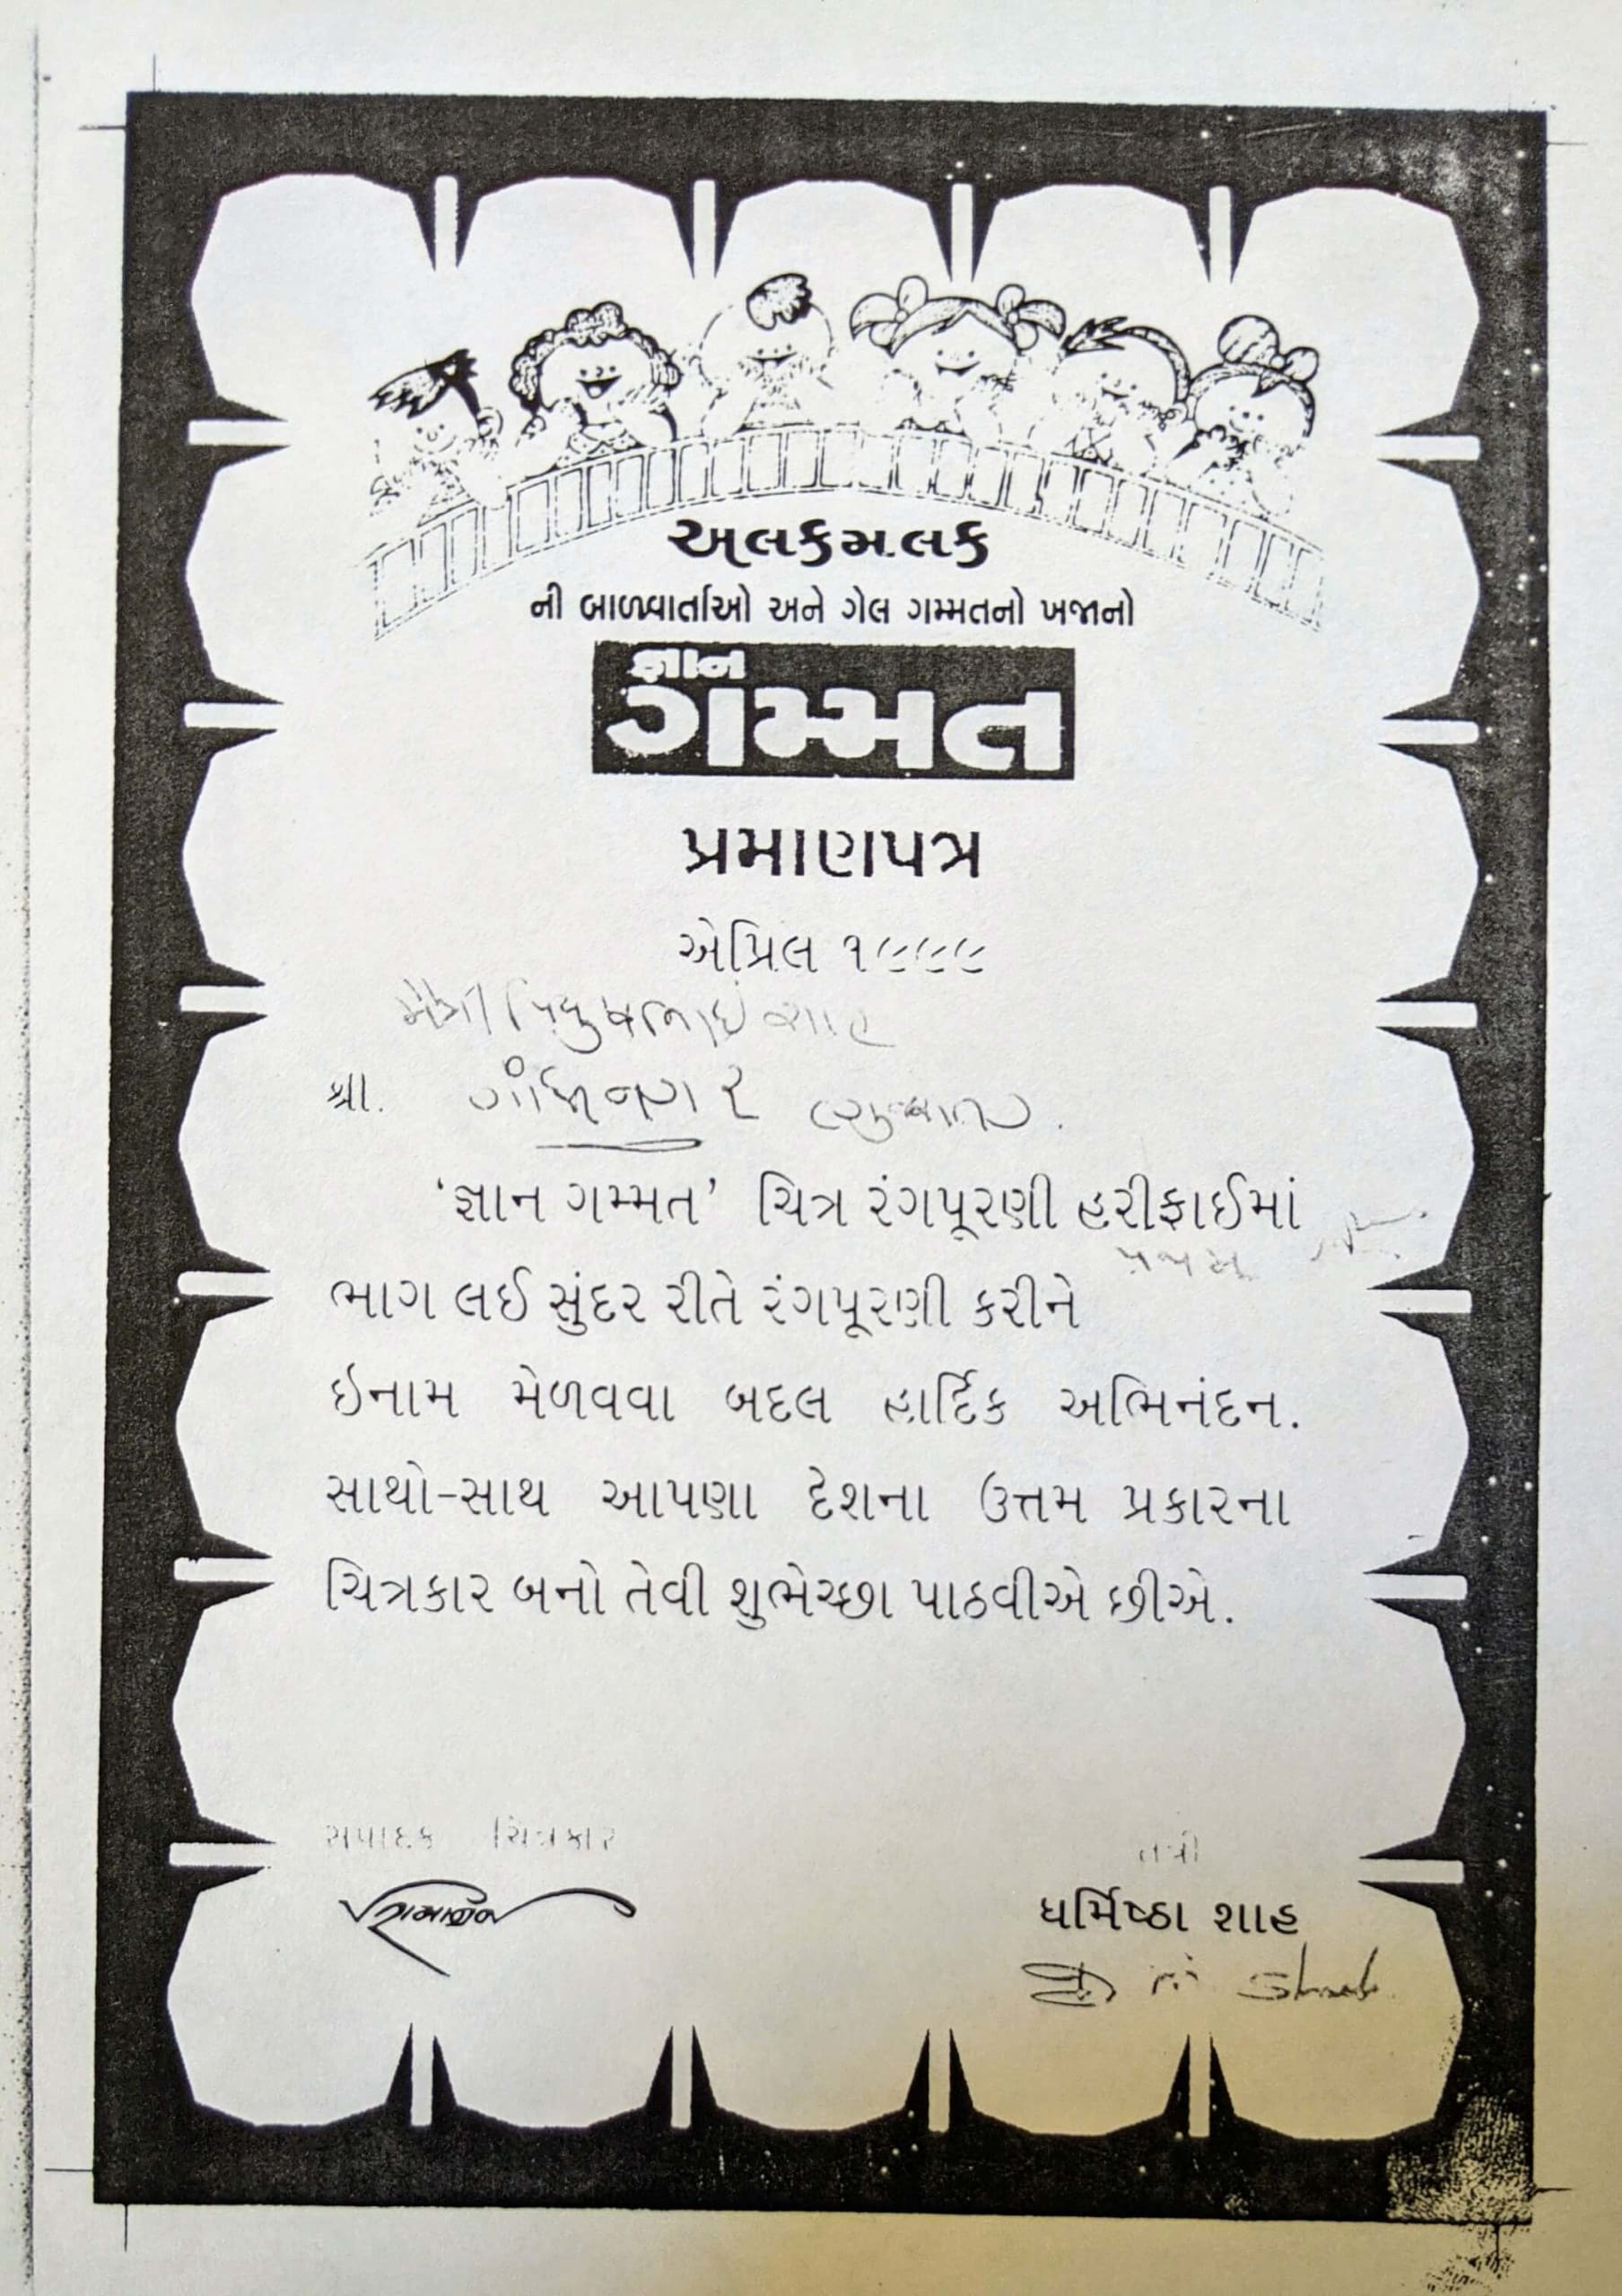 અલકમલક
ની બાળવાર્તાઓ અને ગેલ ગમ્મતનો ખજાનો
જ્ઞાન
ગમ્મત
પ્રમાણપત્ર
એપ્રિલ ૧૯૯૯
મૈત્રી પિયુષભાઇ શાહ
શ્રી. ગાંધીનગર ગુજરાત.
‘જ્ઞાન ગમ્મત’ ચિત્ર રંગપૂરણી હરીફાઈમાં
ભાગ લઈ સુંદર રીતે રંગપૂરણી કરીને પ્રથમ
ઇનામ મેળવવા બદલ હાર્દિક અભિનંદન.
સાથો-સાથ આપણા દેશના ઉત્તમ પ્રકારના
ચિત્રકાર બનો તેવી શુભેચ્છા પાઠવીએ છીએ.
સંપાદક ચિત્રકાર તંત્રી
ધર્મિષ્ઠા શાહ
Shah